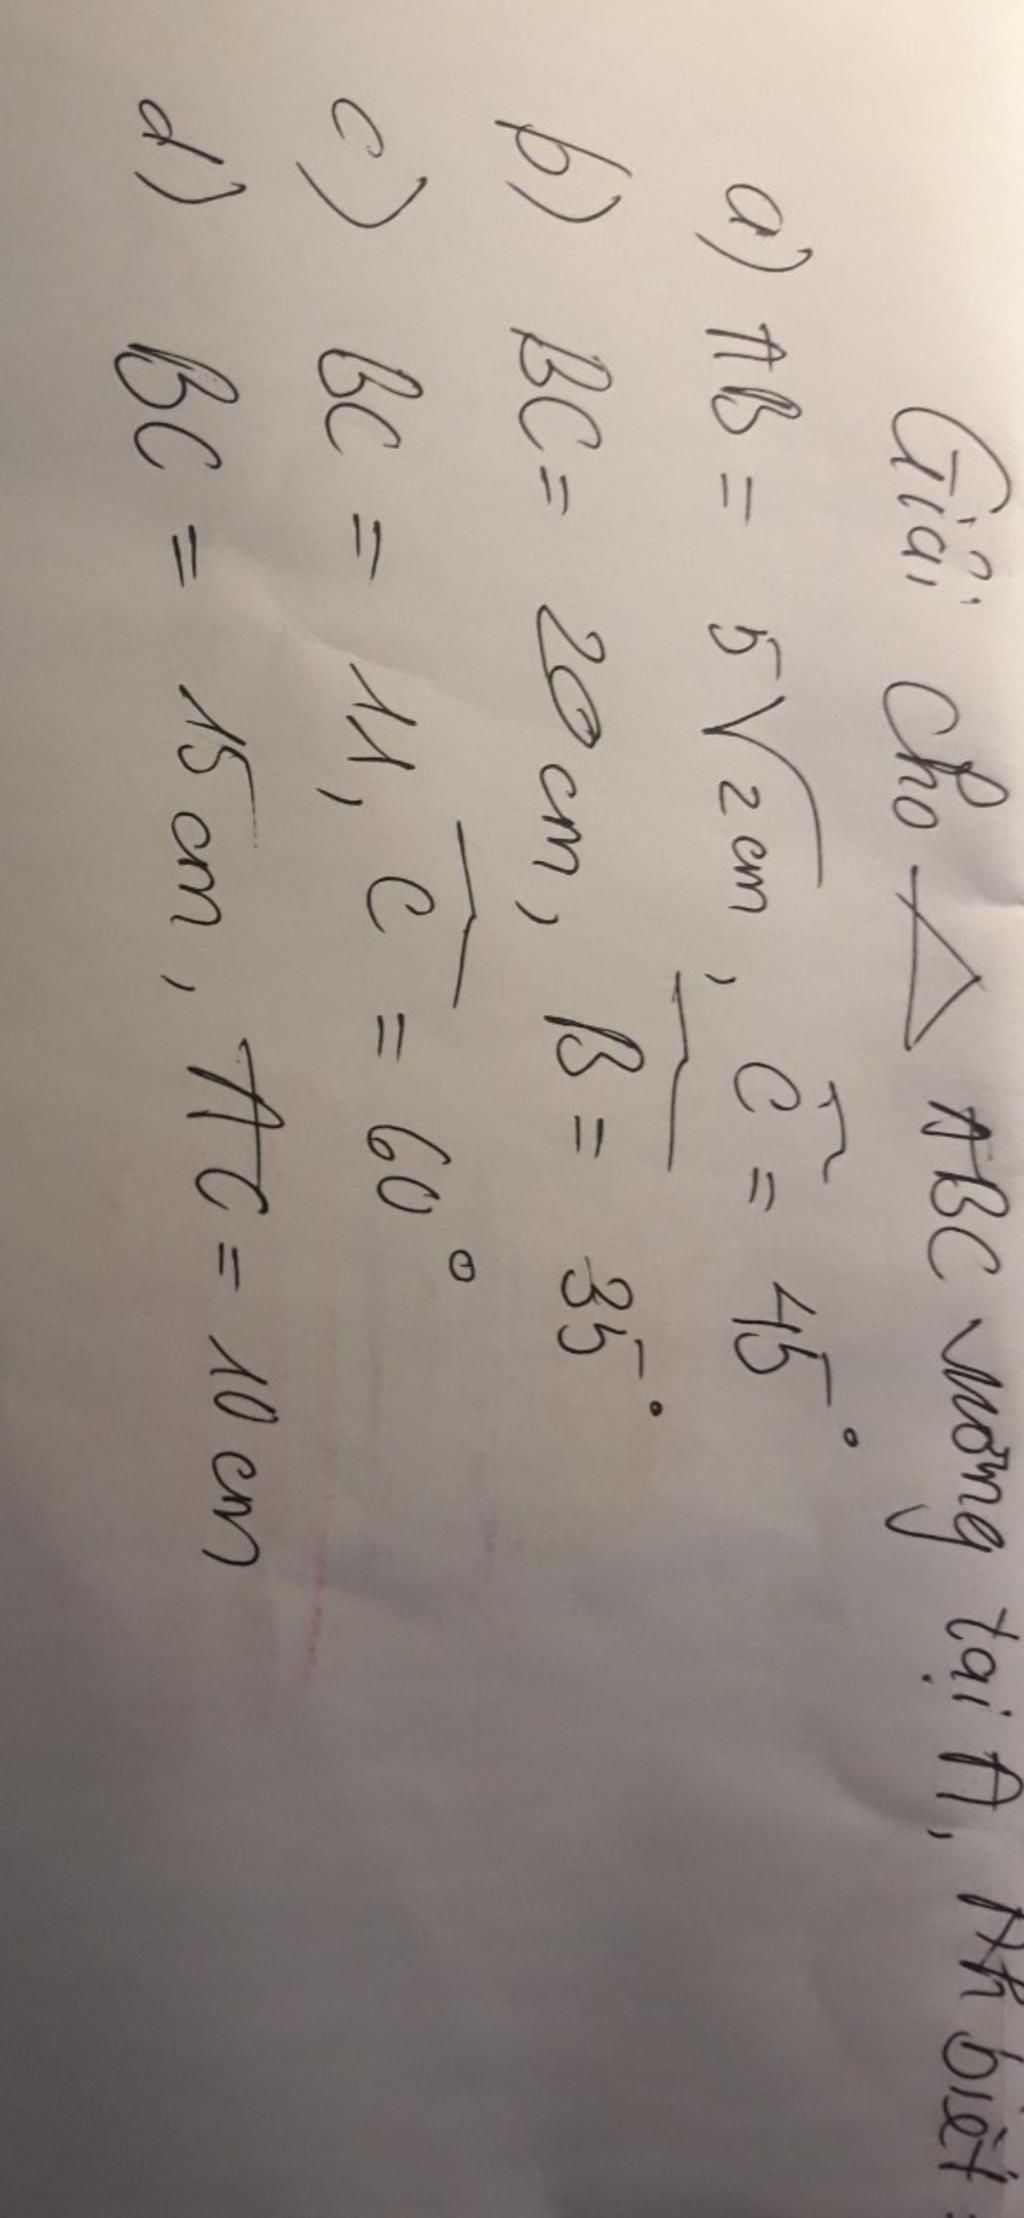 Giải Cho △ ABC vuông tại A, biết:
a) AB = 5√2cm, Ĉ = 45°
b) BC = 20cm, B̂ = 35°
c) BC = 11, Ĉ = 60°
d) BC = 15cm, AC = 10cm